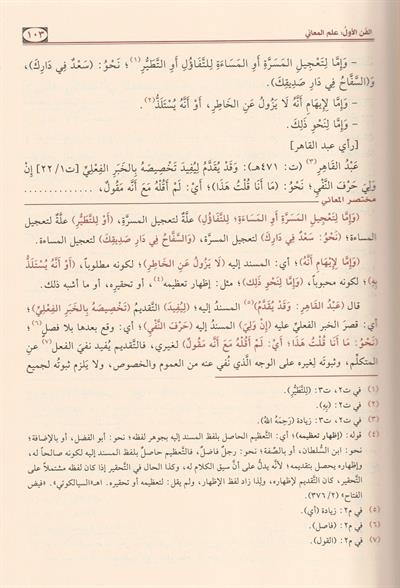 الفن الأول: علم المعاني
١٠٣
- وَإِمَّا لِتَعْجِيلِ المَسَرَّةِ أَوِ المَسَاءَةِ لِلتَّفَاؤُلِ أَوِ التَّطَيُّرِ(١)؛ نَحْوُ: «سَعْدٌ فِي دَارِكَ»،
وَ«السَّفَّاحُ فِي دَارِ صَدِيقِكَ».
- وَإِمَّا لِإِيهَامِ أَنَّهُ لَا يَزُولُ عَنِ الخَاطِرِ، أَوْ أَنَّهُ يُسْتَلَذُّ(٢).
- وَإِمَّا لِنَحْوِ ذَلِكَ.
[رأي عبد القاهر]
عَبْدُ القَاهِرِ(٣) (ت: ٤٧١هـ): وَقَدْ يُقَدَّمُ لِيُفِيدَ تَخْصِيصَهُ بِالخَبَرِ الفِعْلِيِّ [ت١/ ٢٢] إِنْ
وَلِيَ حَرْفَ النَّفْيِ؛ نَحْوُ: «مَا أَنَا قُلْتُ هَذَا»؛ أَيْ: لَمْ أَقُلْهُ مَعَ أَنَّهُ مَقُولٌ، ..............
مختصر المعاني
(وَإِمَّا لِتَعْجِيلِ المَسَرَّةِ أَوِ المَسَاءَةِ؛ لِلتَّفَاؤُلِ) علَّةٌ لتعجيل المسرَّة، (أَوْ لِلتَّطَيُّرِ) علَّةٌ لتعجيل
المساءة؛ (نَحْوُ: سَعْدٌ فِي دَارِكَ) لتعجيل المسرة، (وَالسَّفَّاحُ فِي دَارِ صَدِيقِكَ) لتعجيل المساءة.
(وَإِمَّا لِإِيهَامِ أَنَّهُ)؛ أي: المسند إليه (لَا يَزُولُ عَنِ الخَاطِرِ)؛ لكونه مطلوباً، (أَوْ أَنَّهُ يُسْتَلَذُّ
بِهِ)؛ لكونه محبوباً، (وَإِمَّا لِنَحْوِ ذَلِكَ)؛ مثل: إظهار تعظيمه(٤)، أو تحقيره، أو ما أشبه ذلك.
قال (عَبْدُ القَاهِرِ: وَقَدْ يُقَدَّمُ)(٥) المسند إليه؛ (لِيُفِيدَ) التقديمُ (تَخْصِيصَهُ بِالخَبَرِ الفِعْلِيِّ)؛
أي: قصرَ الخبر الفعليِّ عليه (إِنْ وَلِيَ) المسندُ إليه (حَرْفَ النَّفْيِ)؛ أي: وقع بعدها بلا فصل(٦)؛
(نَحْوُ: مَا أَنَا قُلْتُ هَذَا؛ أَيْ: لَمْ أَقُلْهُ مَعَ أَنَّهُ مَقُولٌ) لغيري، فالتقديم يُفيد نفيَ الفعل(٧) عن
المتكلِّم، وثبوتَه لغيره على الوجه الذي نُفي عنه من العموم والخصوص، ولا يَلزم ثبوتُه لجميع
(١) في ت٢، ت٣: (لِلتَّطَيُّرِ).
(٢) في ت٢: (بِهِ).
(٣) في ت٢، ت٣: زيادة (رَحِمَهُ اللهُ).
(٤) قوله: (إظهار تعظيمه)؛ أي: التَّعظيم الحاصل بلفظ المسند إليه بجوهر لفظه؛ نحو: أبو الفضل، أو بالإضافة؛
نحو: ابن السُّلطان، أو بالصِّفة؛ نحو: رجلٌ فاضلٌ، فالتَّعظيم حاصلٌ بلفظ المسند إليه لكونه صالحاً له،
وإظهاره يحصل بتقديمه؛ لأنَّه يدلُّ على أنَّ سيق الكلام له، وكذا الحال في التَّحقير إذا كان لفظه مشتملاً على
التَّحقير، كان التَّقديم لإظهاره، ولذا زاد لفظ الإظهار، ولم يقل: لتعظيمه أو تحقيره. اهـ«السيالكوتي». «فيض
الفتاح» (٢/ ٣٧٦).
(٥) في م٢: زيادة (أي).
(٦) في م٢: (فاصل).
(٧) في م٢: (القول).